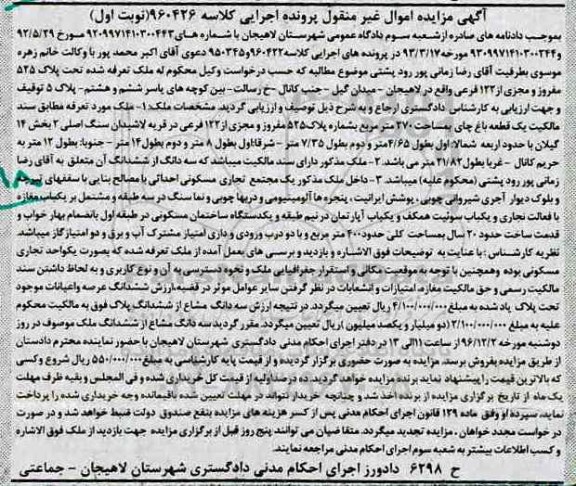 آگهی مزایده اموال غیر منقول پرونده اجرایی کلاسه ۹۶۰۴۲۶(نوبت اول)
بموجب دادنامه های صادره ازشعبه سوم دادگاه عمومی شهرستان لاهیجان با شماره های۹۲۰۹۹۷۱۴۱۰۳۰۰۴۴۳ مورخ ۹۲/۵/۲۹
و۹۳۰۹۹۷۱۴۱۰۳۰۰۲۴۴ مورخه ۹۳/۳/۱۷ در پرونده های اجرایی کلاسه۹۶۰۴۲۲و۹۵۰۳۴۵ دعوی آقای اکبر محمد پور با وکالت خانم زهره
موسوی بطرفیت آقای رضا زمانی پور رود پشتی موضوع مطالبه که حسب درخواست وکیل محکوم له ملک تعرفه شده تحت پلاک ۵۲۵
مفروز و مجزی از۱۲۲ فرعی واقع در لاهیجان - میدان گیل - جنب کانال -خ رسالت- بین کوچه های یاسر ششم و هشتم- پلاک ۵ توقیف
و جهت ارزیابی به کارشناس دادگستری ارجاع و به شرح ذیل توصیف و ارزیابی گردید. مشخصات ملک: ۱- ملک مورد تعرفه مطابق سند
مالکیت یک قطعه باغ چای بمساحت ۲۷۰ متر مربع بشماره پلاک۵۲۵ مفروز و مجزی از۱۲۲ فرعی در قریه لاشیدان سنگ اصلی ۲ بخش ۱۴
گیلان با حدود اربعه شمالا: اول بطول ۴/۶۵متر و دوم بطول ۷/۳۵ متر -شرقا:اول بطول ۸ متر و دوم بطول۱۴ متر - جنوبا: بطول ۱۲ متر به
حریم کانال - غربا بطول۲۱/۸۲ متر می باشد. ۲- ملک مذکور دارای سند مالکیت میباشد که سه دانگ از ششدانگ آن متعلق به آقای رضا
زمانی پور رود پشتی (محکوم علیه) میباشد. ۳-داخل ملک مذکور یک مجتمع تجاری مسکونی احداثی با مصالح بنایی با سقفهای
و بلوک دیوار آجری شیروانی چوبی ، پوشش ایرانیت ، پنجره ها آلومینیومی و دربها چوبی و نما سنگ در سه طبقه و مشتمل بر یکباب مغازه
با فعال نجاری و یکباب سوئیت همکف و یکباب آپارتمان در نیم طبقه و یکدستگاه ساختمان مسکونی در طبقه اول باانضمام بهار خواب و
قدمت ساخت حدود ۲۰ سال بمساحت کلی حدود۴۰۰ متر مربع و با دو درب ورودی و دارای امتیاز مشترک آب و برق و دو امتیاز گاز میباشد.
نظریه کارشناس : با عنایت به توضیحات فوق الاشاره و بازدید و بررسی های بعمل آمده از ملک تعرفه شده که بصورت یکواحد تجاری
مسکونی بوده وهمچنین با توجه به موقعیت مکانی و استقرار جغرافیایی ملک و نحوه دسترسی به آن و نوع کاربری و به لحاظ داشتن سند
مالکیت رسمی و حق مالکیت مغازه، امتیازات و انشعابات در نظر گرفتن سایر عوامل موثر در قضیه،ارزش ششدانگ عرصه واعیانات موجود
تحت پلاک یاد شده به مبلغ ۴/۱۰۰/۰۰۰/۰۰۰ ریال تعیین میگردد. در نتیجه ارزش سه دانگ مشاع از ششدانگ پلاک فوق به مالکیت محکوم
علیه به مبلغ ۲/۱۰۰/۰۰۰/۰۰۰ (دو میلیار و یکصد میلیون )ریال تعیین میگردد. مقرر گردید سه دانگ مشاع از ششدانگ ملک موصوف در روز
دوشنبه مورخه ۹۶/۱۲/۲ از ساعت ۱۱الی ۱۳ در دفتر اجرای احکام مدنی دادگستری شهرستان لاهیجان با حضور نماینده محترم دادستان
از طریق مزایده بفروش برسد. مزایده به صورت حضوری برگزار گردیده و از قیمت پایه کارشناسی به مبلغ۵۵۰/۰۰۰/۰۰۰ ریال شروع وکسی
که بالاترین قیمت را پیشنهاد نماید برنده مزایده خواهد گردید. ده درصداولیه از قیمت کل خریداری شده و فی المجلس و بقیه ظرف مهلت
یک ماه از تاریخ برگزاری مزایده از برنده اخذ شد و چنانچه خریدار نتواند در مهلت تعیین شده باقیمانده وجه خریداری شده را پرداخت
نماید، سپرده او وفق ماده ۱۲۹ قانون اجرای احکام مدنی پس از کسر هزینه های مزایده بنفع صندوق دولت ضبط خواهد شد و در صورت
در خواست مجدد خواهان ، مزایده تجدید میگردد. متقاضیان می توانند پنج روز قبل از برگزاری مزایده جهت بازدید از ملک فوق الاشاره
و کسب اطلاعات بیشتر به شعبه سوم اجرای احکام مدنی مراجعه نمایند.
ح ۶۲۹۸ دادورز اجرای احکام مدنی دادگستری شهرستان لاهیجان - جماعتی